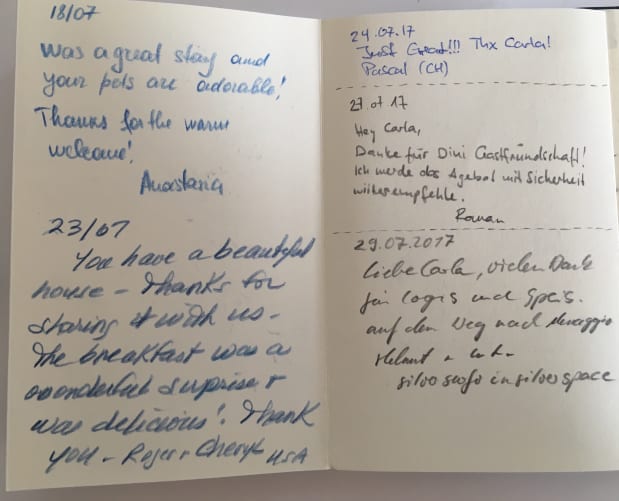 18/07
Was a great stay and
your pets are adorable!
Thanks for the warm
welcome!
Anastasia
23/07
You have a beautiful
house - Thanks for
sharing it with us -
The breakfast was a
wonderful surprise +
was delicious! Thank
you - Roger + Cheryl USA
24.07.17
Just Great!!! Thx Carla!
Pascal (CH)
27.07 17
Hey Carla,
Danke für Dini Gastfründschaft!
Ich werde das Agebot mit Sicherheit
witerempfehle.
Roman
29.07.2017
Liebe Carla, vielen Dank
für Logis und Speis.
auf dem Weg nach Menaggio
Helmut
silvo in silverspace